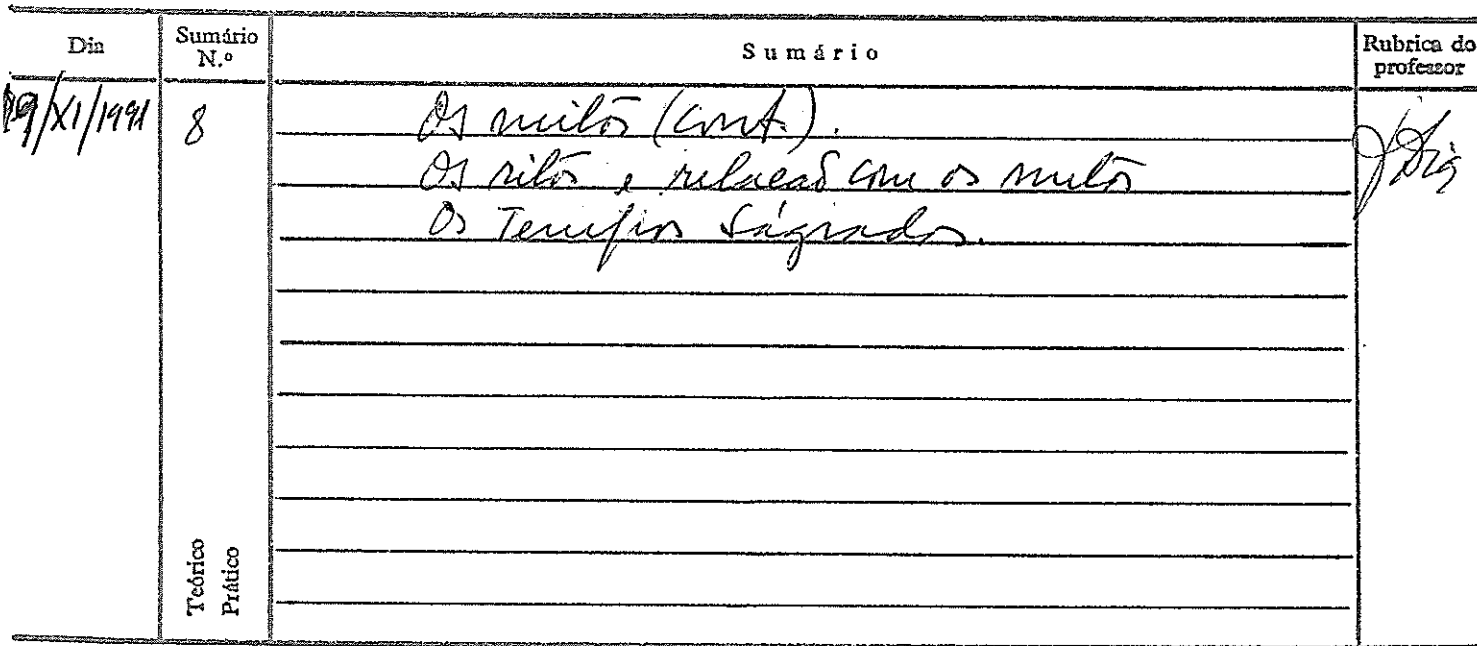 Dia
Sumário N.º
Sumário
Rubrica do professor
/XI/1991
8
Os mitos (cont.).
Os ritos e relação com os mitos
Os Tempos Sagrados.
J Dias
Teórico
Prático